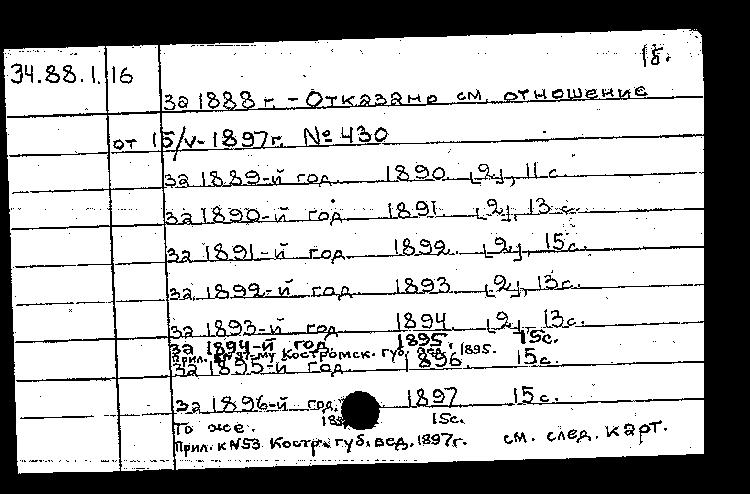 18.
34.88.1.16
за 1888 г. - Отказано см. отношение
от 15/V-1897г. № 430
за 1889-й год 1890 [2], 11 с.
за 1890-й год 1891 [2], 13 с.
за 1891-й год 1892 [2], 15с.
за 1892-й год 1893 [2], 13с.
за 1893-й год 1894 [2], 13с.
за 1894-й год 1895. 15с.
Прил. к № 37-му Костромск. губ. вед. 1895.
за 1895-й год 1896 15с.
за 1896-й год. 1897 15с.
То же. 15с.
Прил. к №53 Костр. губ. вед. 1897г. см. след. карт.